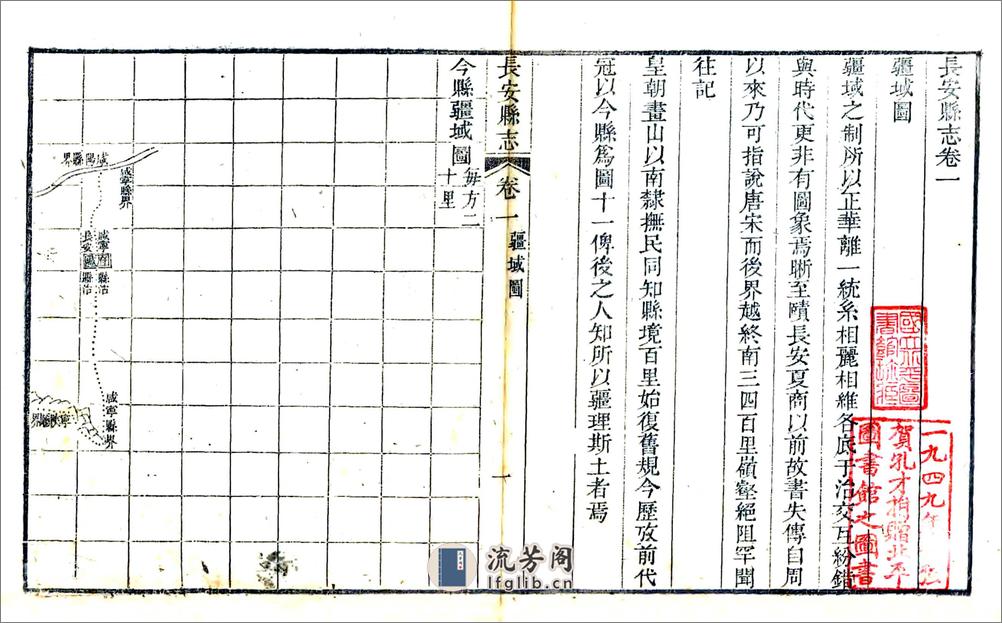 長安縣志卷一
疆域圖
疆域之制所以正華離一統系相麗相維各底于治交互紛錯
與時代更非有圖象焉晰至賾長安夏商以前故書失傳自周
以來乃可指說唐宋而後界越終南三四百里嶺壑絕阻罕聞
往記
皇朝畫山以南隸撫民同知縣境百里始復舊規今歷攷前代
冠以今縣爲圖十一俾後之人知所以疆理斯土者焉
一九四九年
賀孔才捐贈北平
圖書館之圖書
長安縣志
卷一
疆域圖
一
今縣疆域圖
每方二
十里
咸寧縣界
咸陽縣界
咸寧
縣治
長安
縣治
咸寧縣界
寧陝廳界
流芳阁
lfglib.cn